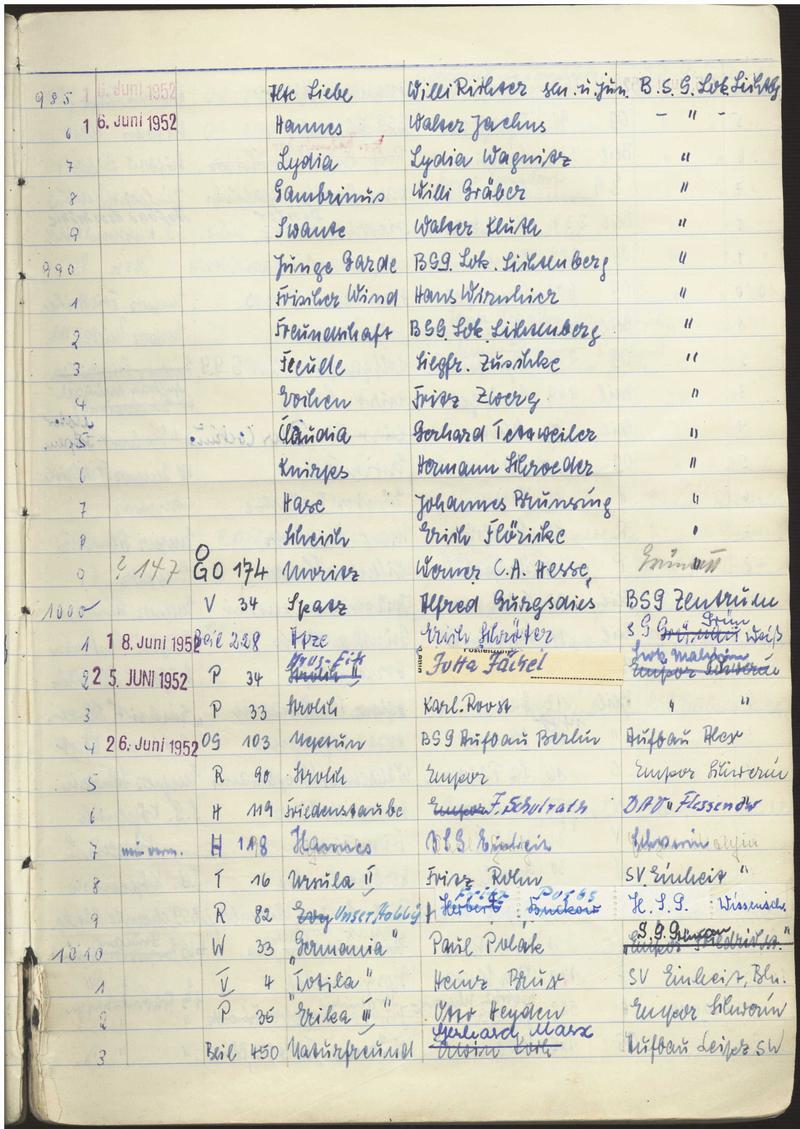 985 16. Juni 1952 Alte Liebe Willi Richter sen. u. jun. B.S.G. Lok Lichtbg
6 16. Juni 1952 Hannes Walter Jachns - " -
7 Lydia Lydia Wagnitz "
8 Gambrinus Willi Gräber "
9 Swante Walter Kluth "
990 Junge Garde BSG. Lok. Lichtenberg "
1 Frischer Wind Hans "
2 Freundschaft BSG. Lok. Lichtenberg "
3 Freude Siegfr. Zuschke "
4 Evchen Fritz Zwerg "
5 Claudia Gerhard Tettweiler "
6 Knirps Hermann Schroeder "
7 Hase Johannes Brunsing "
8 Scheich Erich Flöricke "
? 147 GO 174 Moritz Werner C.A. Hesse
1000 V 34 Spatz Alfred Burgsdies BSG Zentrum
1 18. Juni 1952 Beil 228 Atze Erich Schröter S G Grün Weiß
2 25. JUNI 1952 P 34 Strolch II Jutta Jäckel Empor Schwerin
3 P 33 Strolch Karl. Roost " "
4 26. Juni 1952 OG 103 Neptun BSG Aufbau Berlin Aufbau Alex
5 R 90 Strolch Empor Empor Schwerin
6 H 119 Friedenstaube Empor F. Schulrath DAV "Flessenow
7 H 118 Hannes BSG Einheit Schwerin
8 T 16 Ursula II Fritz Rohn SV. Einheit "
9 R 82 Unser Hobby Fritz Herbert H.S.G. Wissensch.
1010 W 33 "Germania" Paul Polak S.G. Empor Friedrichst."
1 V 4 "Totila" Heinz Brux SV Einheit, Bln.
2 P 36 "Erika III" Otto Heyden Empor Schwerin
3 Beil 450 Naturfreund Gerhard Marx Erwin Koch Aufbau Leipz SW